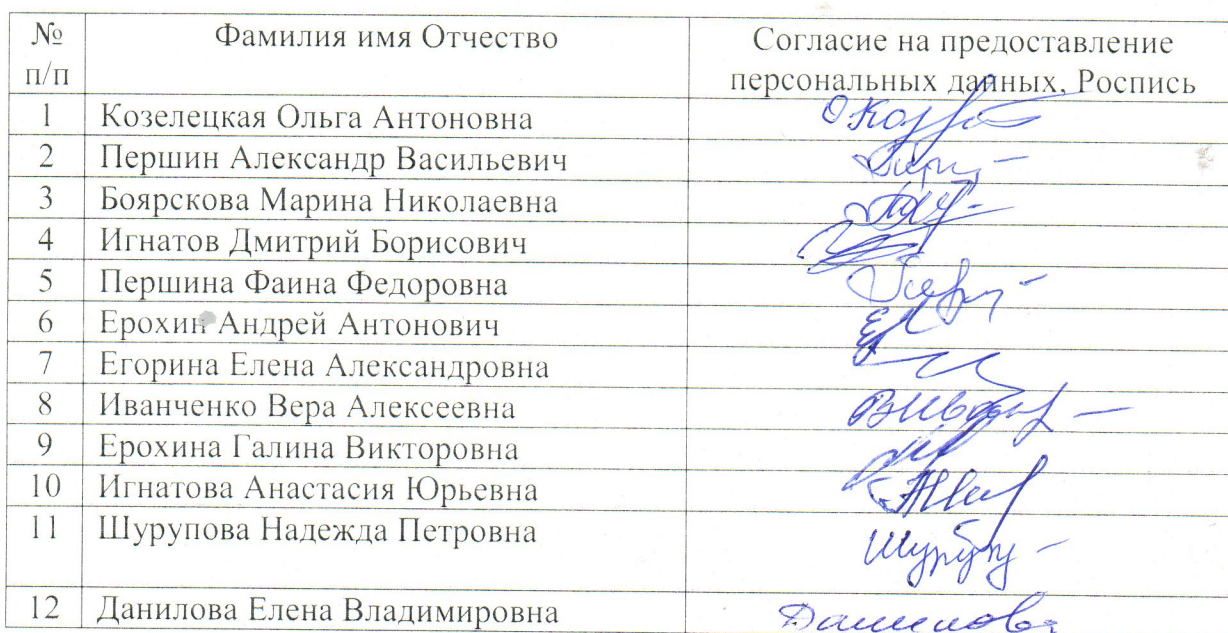 № п/п Фамилия имя Отчество Согласие на предоставление
персональных данных, Роспись
1 Козелецкая Ольга Антоновна
2 Першин Александр Васильевич
3 Боярскова Марина Николаевна
4 Игнатов Дмитрий Борисович
5 Першина Фаина Федоровна
6 Ерохин Андрей Антонович
7 Егорина Елена Александровна
8 Иванченко Вера Алексеевна
9 Ерохина Галина Викторовна
10 Игнатова Анастасия Юрьевна
11 Шурупова Надежда Петровна
12 Данилова Елена Владимировна Данилова